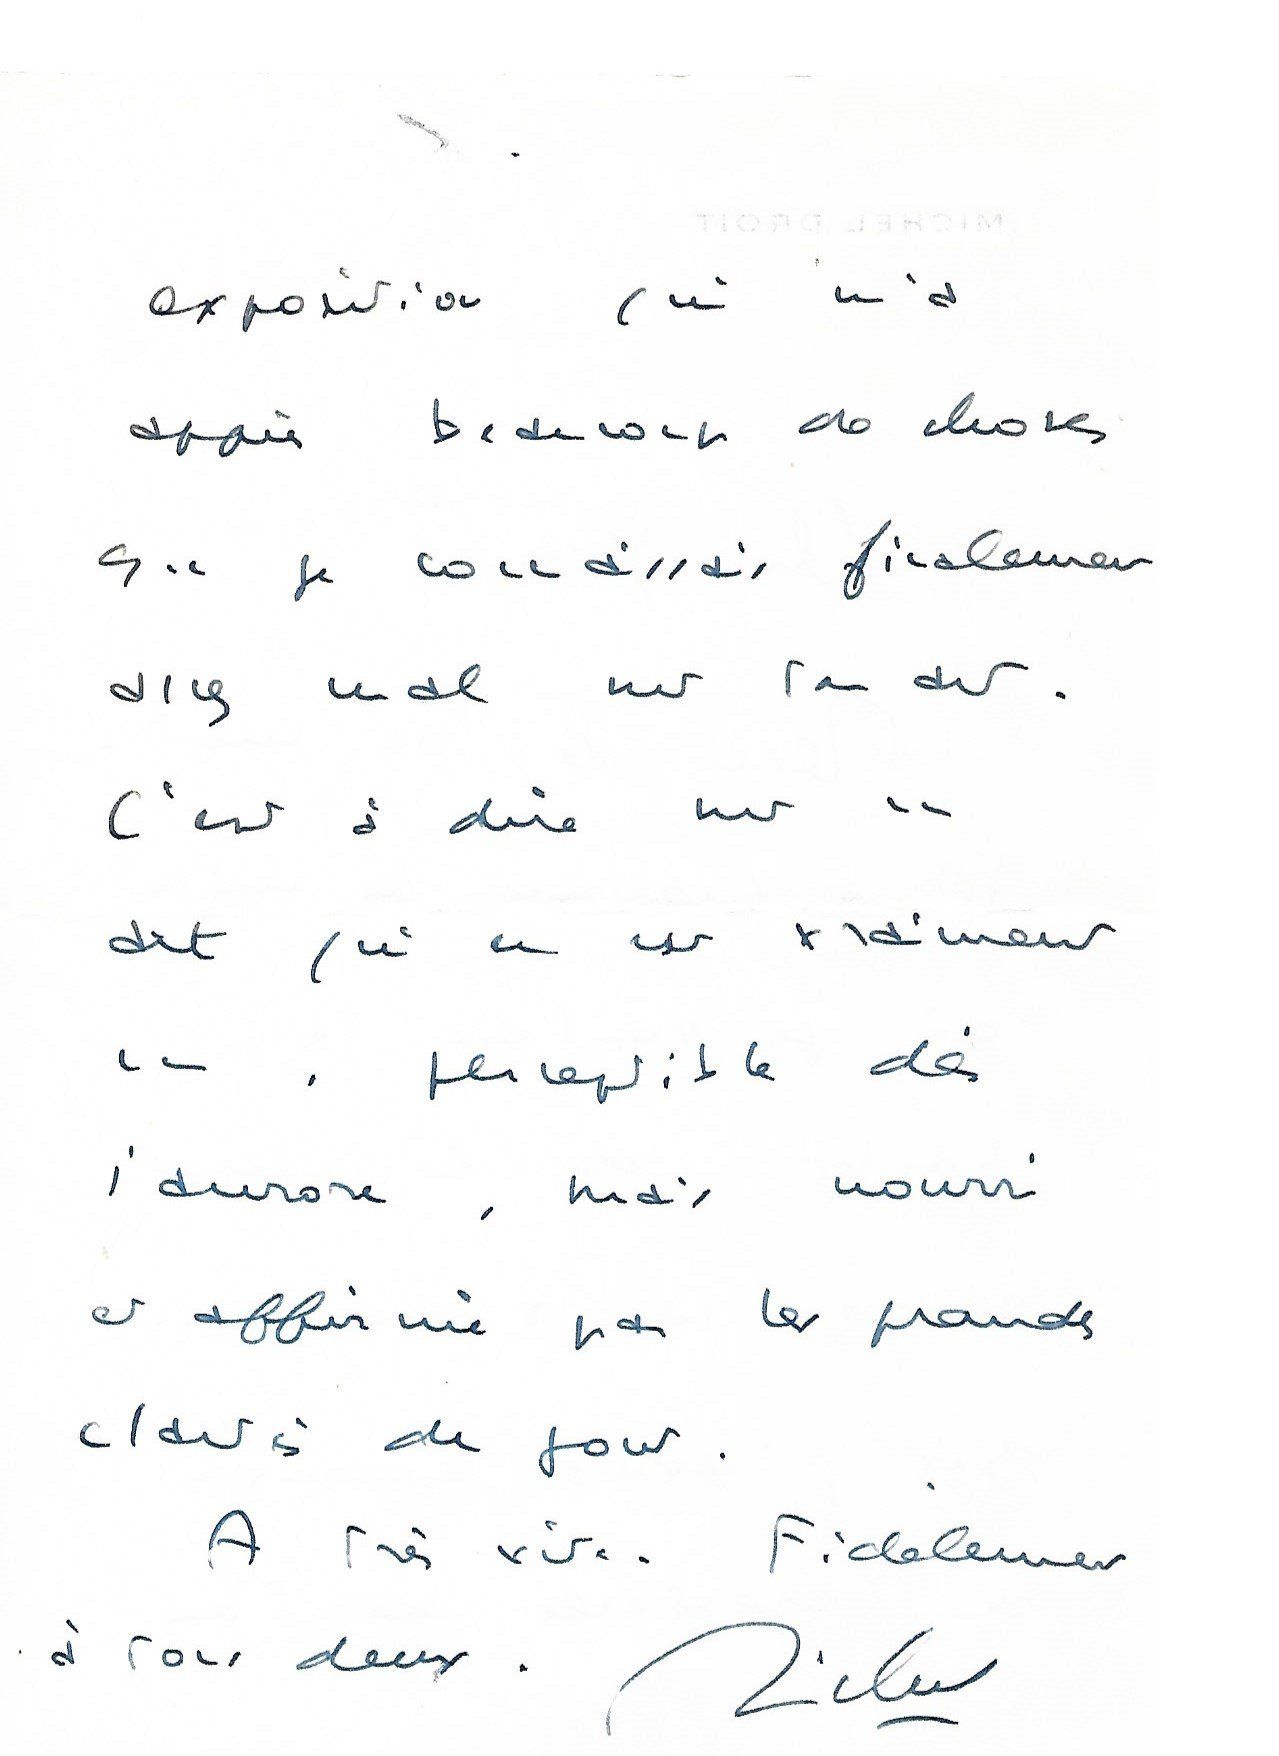 MICHEL DROIT
exposition qui m'a
appris beaucoup de choses
que je connaissais finalement
assez mal sur ton art.
C'est à dire sur un
art qui en est vraiment
un, perceptible dès
l'aurore, mais nourri
et affirmé par les grandes
clartés de jour.
A très vite. Fidèlement
à tous deux. Michel